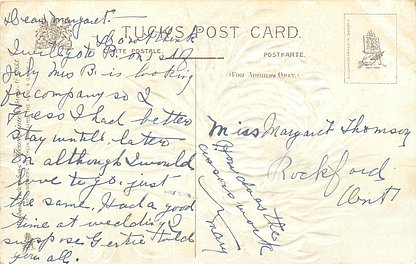 Dear Margaret
I don't think
I will go to B. on 1st
July Mrs B. is looking
for company so I
guess I had better
stay until later
on although I would
love to go just
the same. Had a good
time at wedding I
suppose Gertie told
you all.
How does the
work
Mary
TUCK'S POST CARD.
CARTE POSTALE.
POSTKARTE.
(FOR ADDRESS ONLY.)
Miss Margaret Thomson
Rockford
Ont